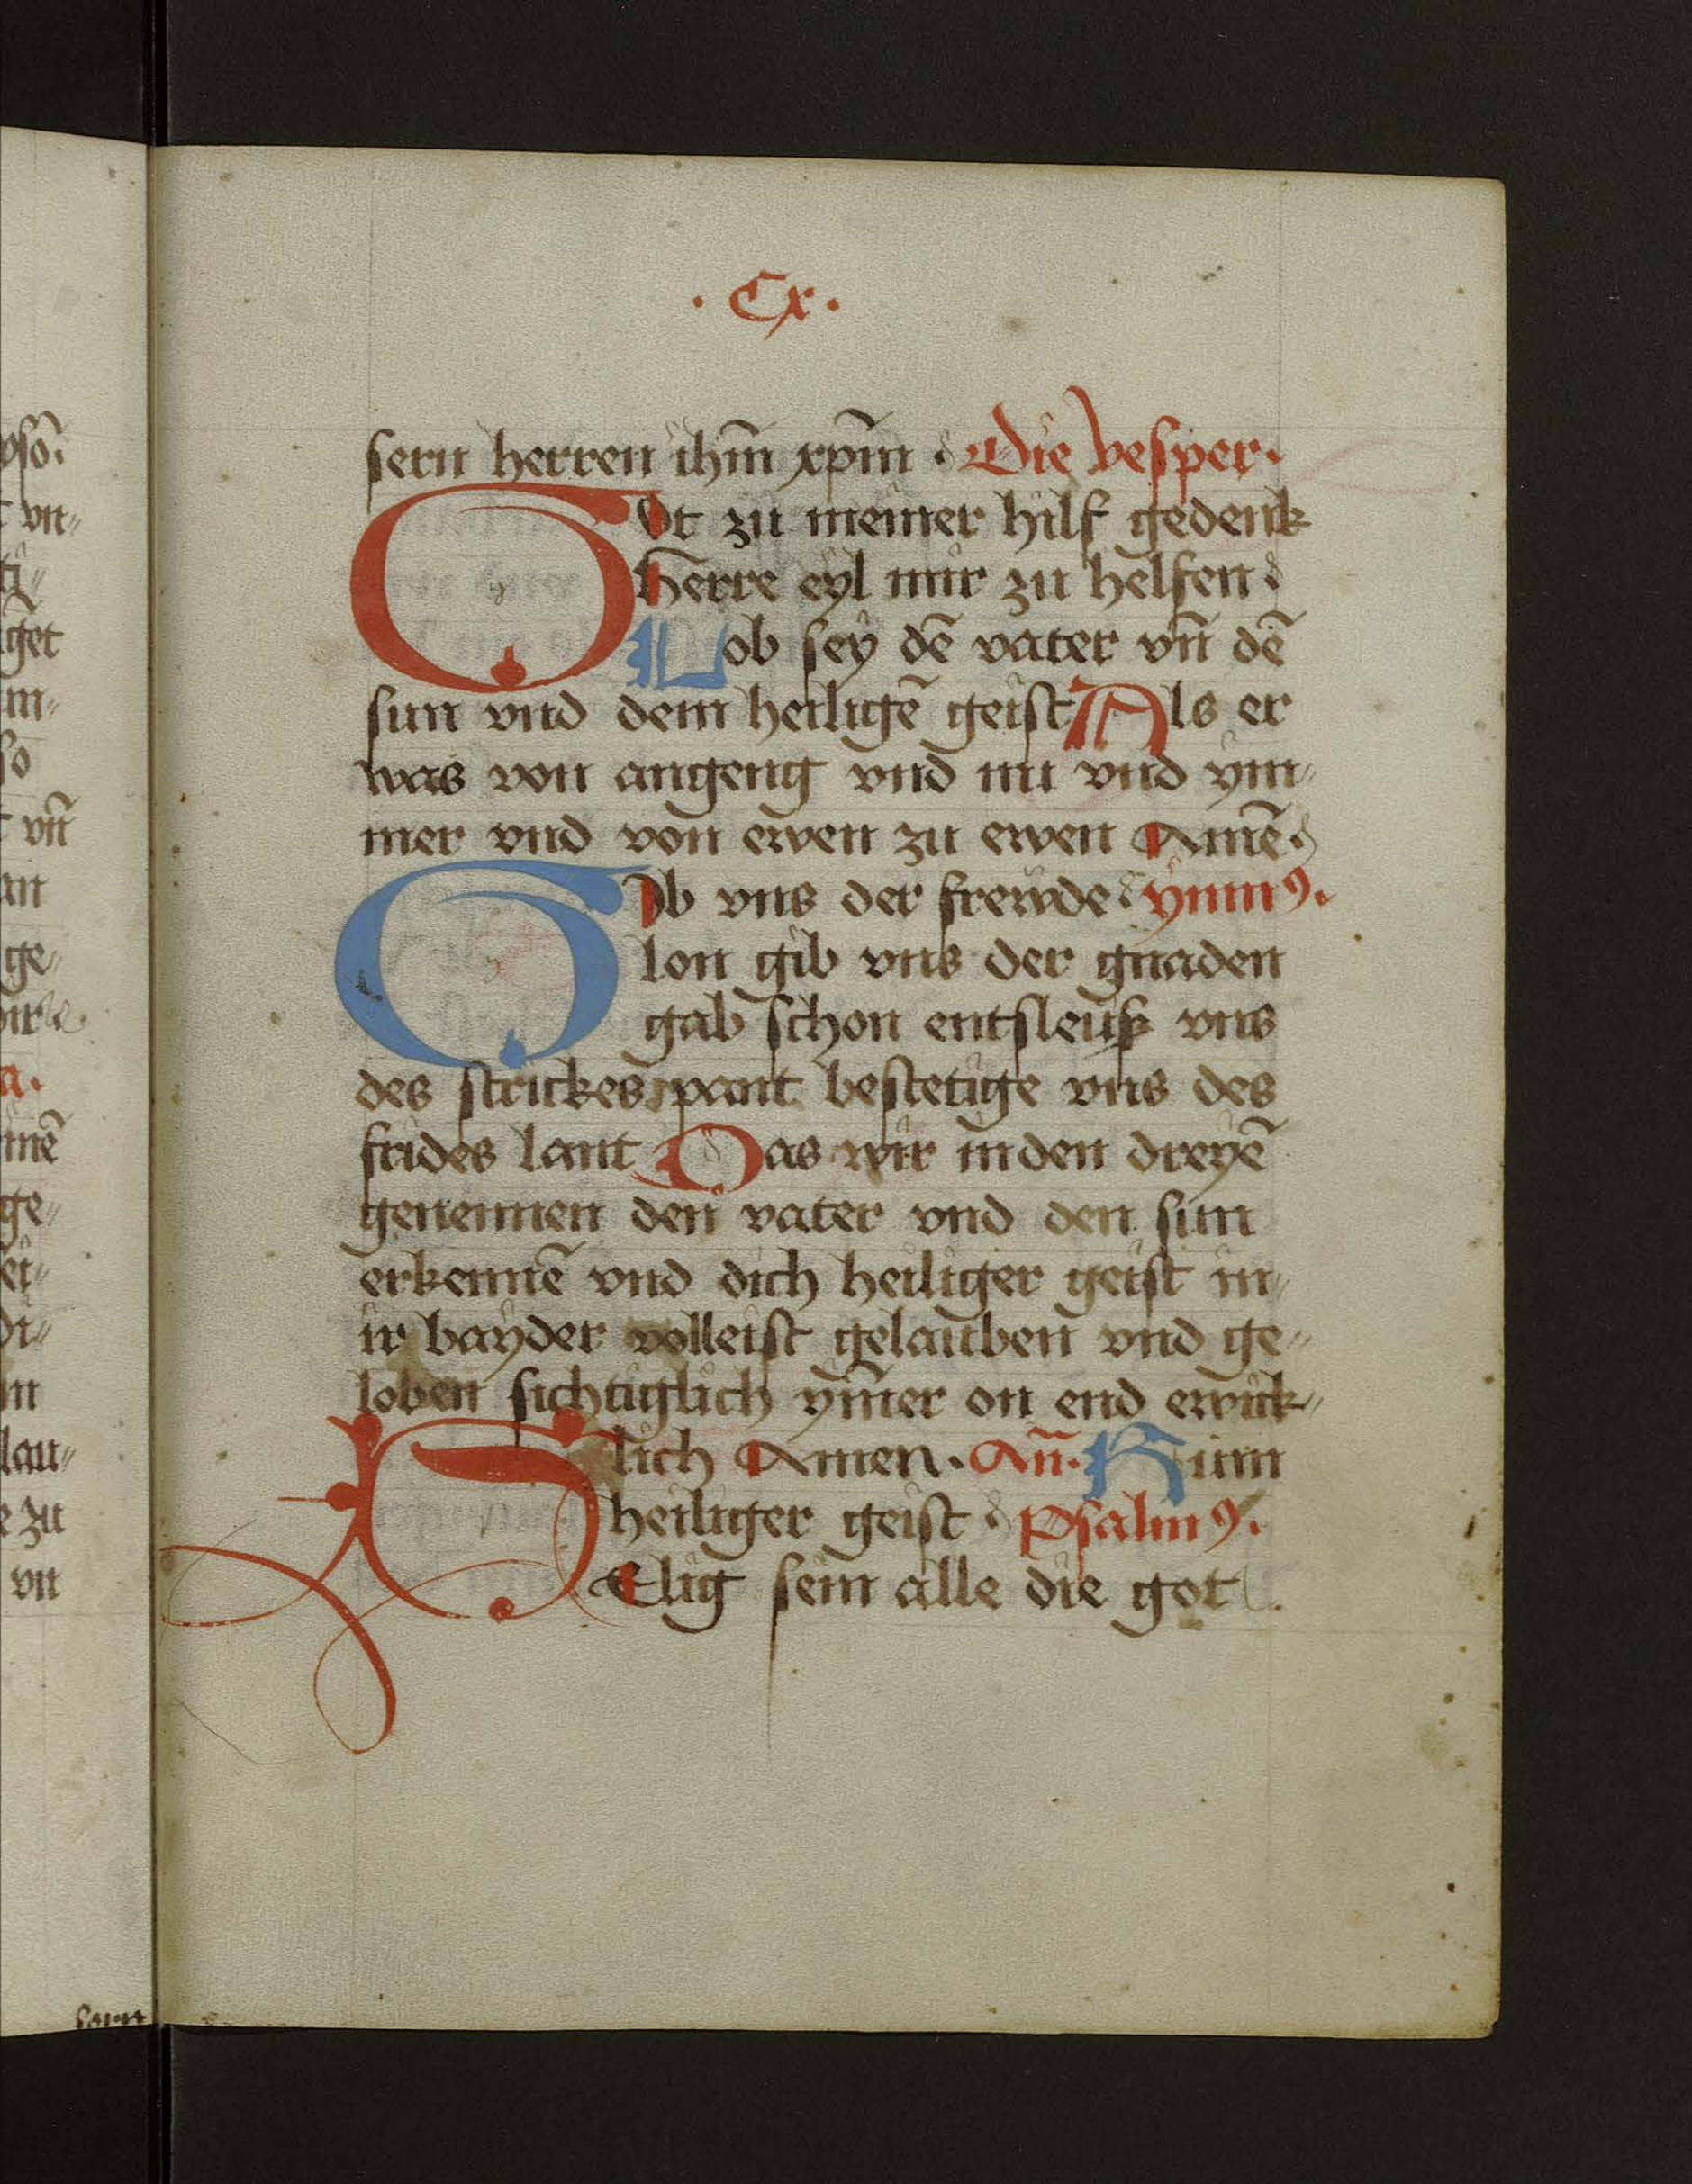 · Cx ·
sern herren ihm̄ xp̄m · Die vesper·
GOt zu meiner hilf gedenk
herre eyl mir zu helfen
Lob sey dē vater vn̄ dē
sun vnd dem heiligē geist Als er
was von angeng vnd nu vnd ym〃
mer vnd von ewen zu ewen Amē·
GIb vns der frewde ymnꝰ·
lon gib vns der gnaden
gab schon entsleuß vns
des strickes pant bestetige vns des
frides lant Das wir in den dreyē
genennen den vater vnd den sun
erkennē vnd dich heiliger geist in〃
ir bayder volleist gelauben vnd ge〃
loben sichtiglich ym̄er on end ewick〃
lich Amen· An̄· Kum
heiliger geist psalmꝰ·
SElig sein alle die got